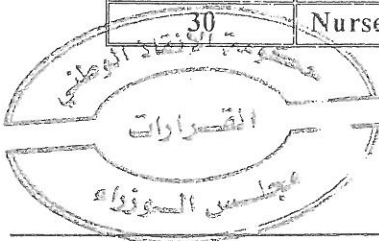 30 Nurse
حكومة الإنقاذ الوطني
القرارات
مجلس الوزراء